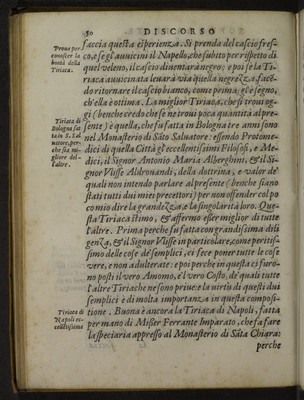 50 DISCORSO
Proua per
conoscer la
bontà della
Tiriaca.
faccia questa esperienza. Si prenda del cascio fres-
co, e se gl'auuicini il Napello, che subito per rispetto di
quel veleno, il cascio diuentarà negro; e poi se la Ti-
riaca auuicinata leuarà via quella negrezza, facẽ-
do ritornare il cascio bianco, come prima; gl'è segno,
ch'ella è ottima. La miglior Tiriaca, che si troui og-
gi (benche credo che se ne troui poca quantità al pre-
sente) è quella, che fu fatta in Bologna tre anni sono
nel Monasterio di Sãto Saluatore: essendo Protome-
dici di quella Città gl'eccellentissimi Filosofi, e Me-
dici, il Signor Antonio Maria Alberghini, & il Si-
gnor Vlisse Aldrouandi, della dottrina, e valor de'
quali non intendo parlare al presente (benche siano
stati tutti dui miei precettori) per non offender col po
co mio dire la grandezza, e la singolarità loro. Que-
sta Tiriaca stimo, & affermo esser miglior di tutte
l'altre. Prima perche fu fatta con grandissima dili
genza, & il Signor Vlisse in particolare, come peritis-
simo delle cose de' semplici, ci fece poner tutte le cose
vere, e non adulterate: e poi perche in questa ci furo-
no posti il vero Amomo, e'l vero Costo, de' quali tutte
l'altre Tiriache ne sono priue: e la virtù de questi dui
semplici è di molta importanza in questa composi-
tione. Buona è ancora la Tiriaca di Napoli, fatta
per mano di Misser Ferrante Imparato, che fa fare
la speciaria appresso al Monasterio di Sãta Chiara:
perche
Tiriaca di
Bologna fat
ta in S. Sal
uatore, per-
che sia mi-
gliore del-
l'altre.
Tiriaca di
Napoli ec-
cellẽtissima